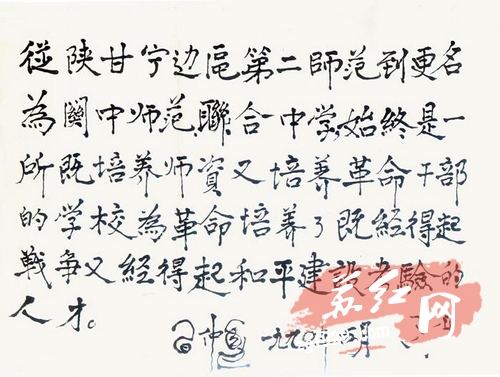 從陕甘宁边區第二師范到更名
為関中师范聯合中学始終是一
所既培养师資又培养革命干部
的学校為革命培养了既経得起
戰争又経得起和平建設考驗的
人才。
苏红网